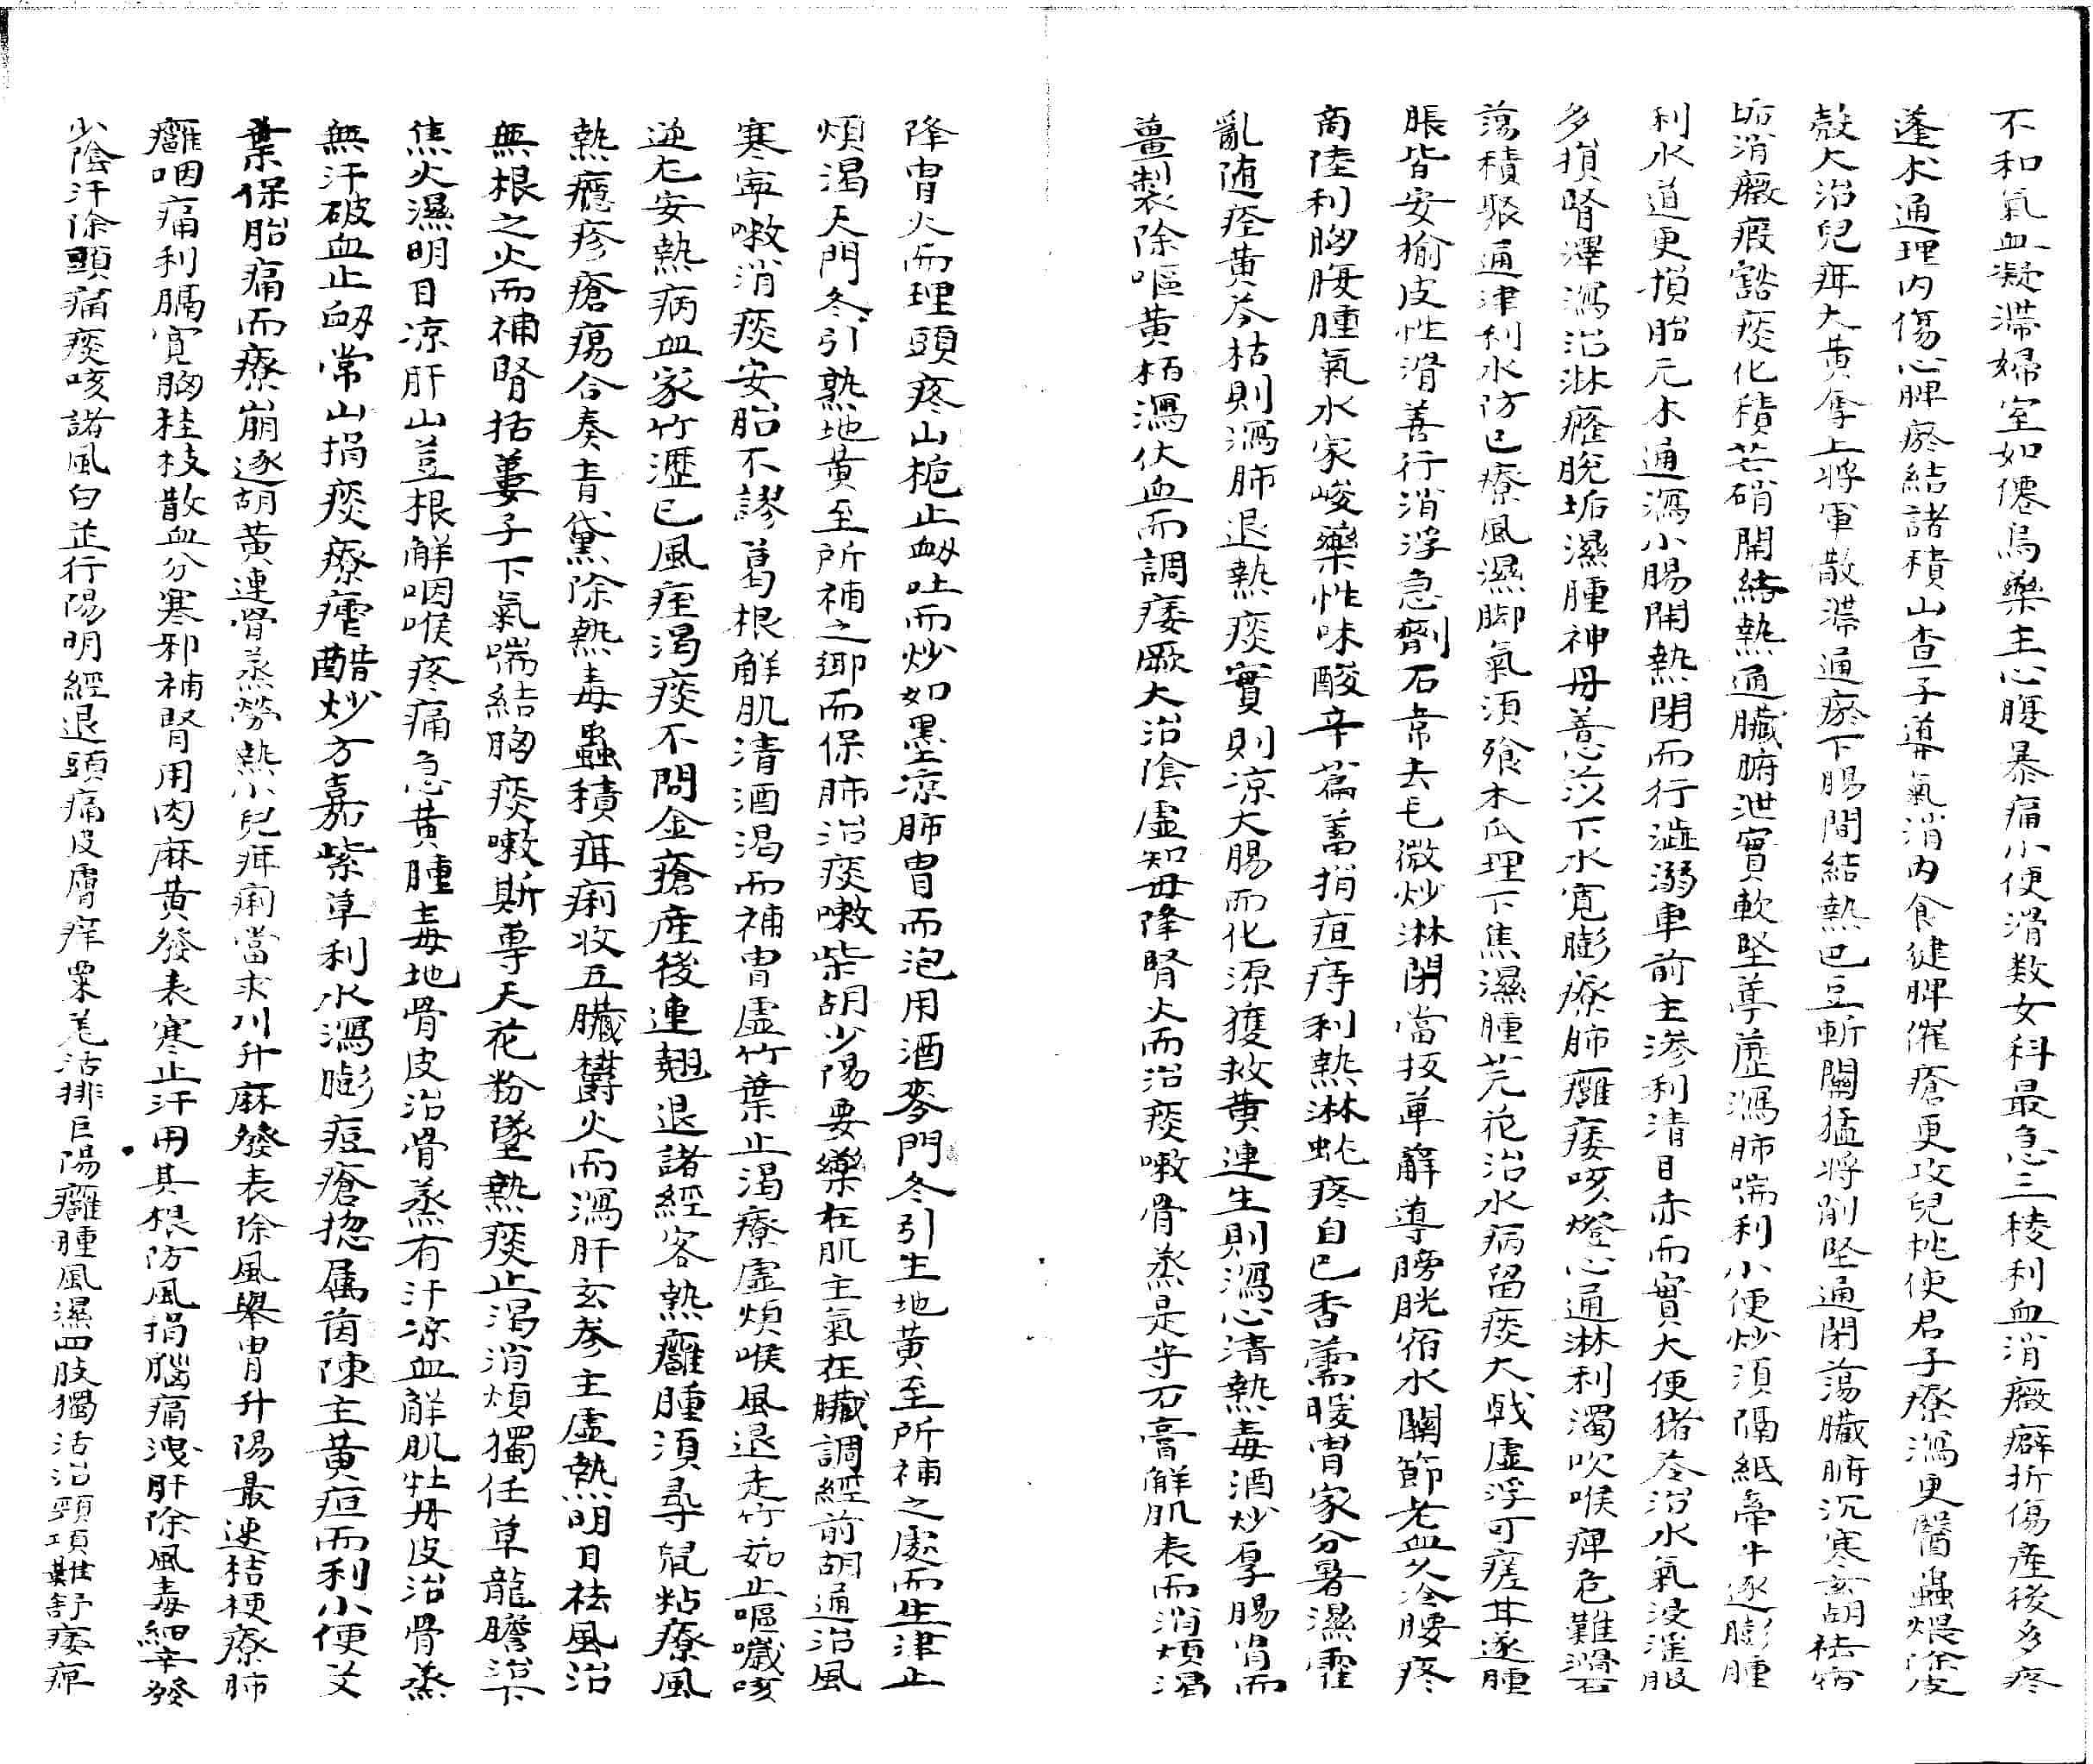 不和氣血凝滯婦室如僊烏藥主心腹暴痛小便滑数女科最急三稜利血消癥癖折傷產後多疼
蓬朮通理內傷心脾瘀結諸積山查子導氣消內食健脾催瘡更攻兒枕使君子療瀉更醫蟲煨除皮
殼大治兒疳大黃奪上將軍散滯通瘀下腸間結熱巴豆斬關猛將削堅通閉蕩臟腑沉寒玄胡祛宿
垢消癥瘕豁痰化積芒硝開結熱通臟腑泄實軟堅葶藶瀉肺喘利小便炒須隔紙牽牛逐膨腫
利水道更損胎元木通瀉小腸開熱閉而行澁溺車前主滲利清目赤而實大便猪苓治水氣浸淫服
多損腎澤瀉治淋癃脫垢濕腫神毋善忘汶下水寛膨療肺癰痿咳燈心通淋利濁吹喉痺危難滑石
蕩積聚通津利水防已療風濕脚氣須飱木瓜理下焦濕腫芫花治水病留痰大戟虛浮可瘥甘遂腫
脹皆安榆皮性滑善行消浮急劑石韋去毛微炒淋閉當扳萆薢導膀胱宿水關節老血久冷腰疼
商陸利胸腹腫氣水家峻藥性味酸辛萹蓄捐疸痔利熱淋蚘疼自已香薷暖胃家分暑濕霍
亂随痊黃芩枯則瀉肺退熱痰實則凉大腸而化源獲救黃連生則瀉心清熱毒酒炒厚腸胃而
薑製除嘔黃栢瀉伏血而調痿厥大治陰虛知毋降腎火而治痰嗽骨蒸是守石膏解肌表而消煩渴
降胃火而理頭疼山梔止衂吐而炒如墨凉肺胃而泡用酒麥門冬引生地黃至所補之處而生津止
煩渴天門冬引熟地黃至所補之鄉而保肺治痰嗽柴胡少陽要藥在肌主氣在臟調經前胡通治風
寒寧嗽消痰安胎不謬葛根解肌清酒渴而補胃虛竹葉止渴療虛煩喉風退走竹茹止嘔噦咳
逆尢安熱病血家竹瀝已風痓渴痰不問金瘡産後連翹退諸經客熱癰腫須尋鼠粘療風
熱癮疹瘡瘍合奏青黛除熱毒蟲積疳痢收五臟欝火而瀉肝玄參主虛熱明目祛風治
無根之火而補腎括蔞子下氣喘結胸痰嗽斯專天花粉墜熱痰止渴消煩獨任草龍膽治下
焦火濕明目凉肝山荳根解咽喉疼痛急黃腫毒地骨皮治骨蒸有汗凉血解肌牡丹皮治骨蒸
無汗破血止衂常山捐痰療瘧醋炒方嘉紫草利水瀉膨痘瘡揔属茵陳主黃疸而利小便艾
葉保胎痛而療崩逐胡黃連骨蒸勞熱小兒疳痢當求川升麻發表除風舉胃升陽最速桔梗療肺
癰咽痛利膈寛胸桂枝散血分寒邪補腎用肉麻黃發表寒止汗用其根防風捐腦痛洩肝除風毒細辛發
少陰汗除頭痛痰咳諸風白芷行陽明經退頭痛皮膚痒粟羌活排巨陽癰腫風濕四肢獨活治頸項難舒痿痺